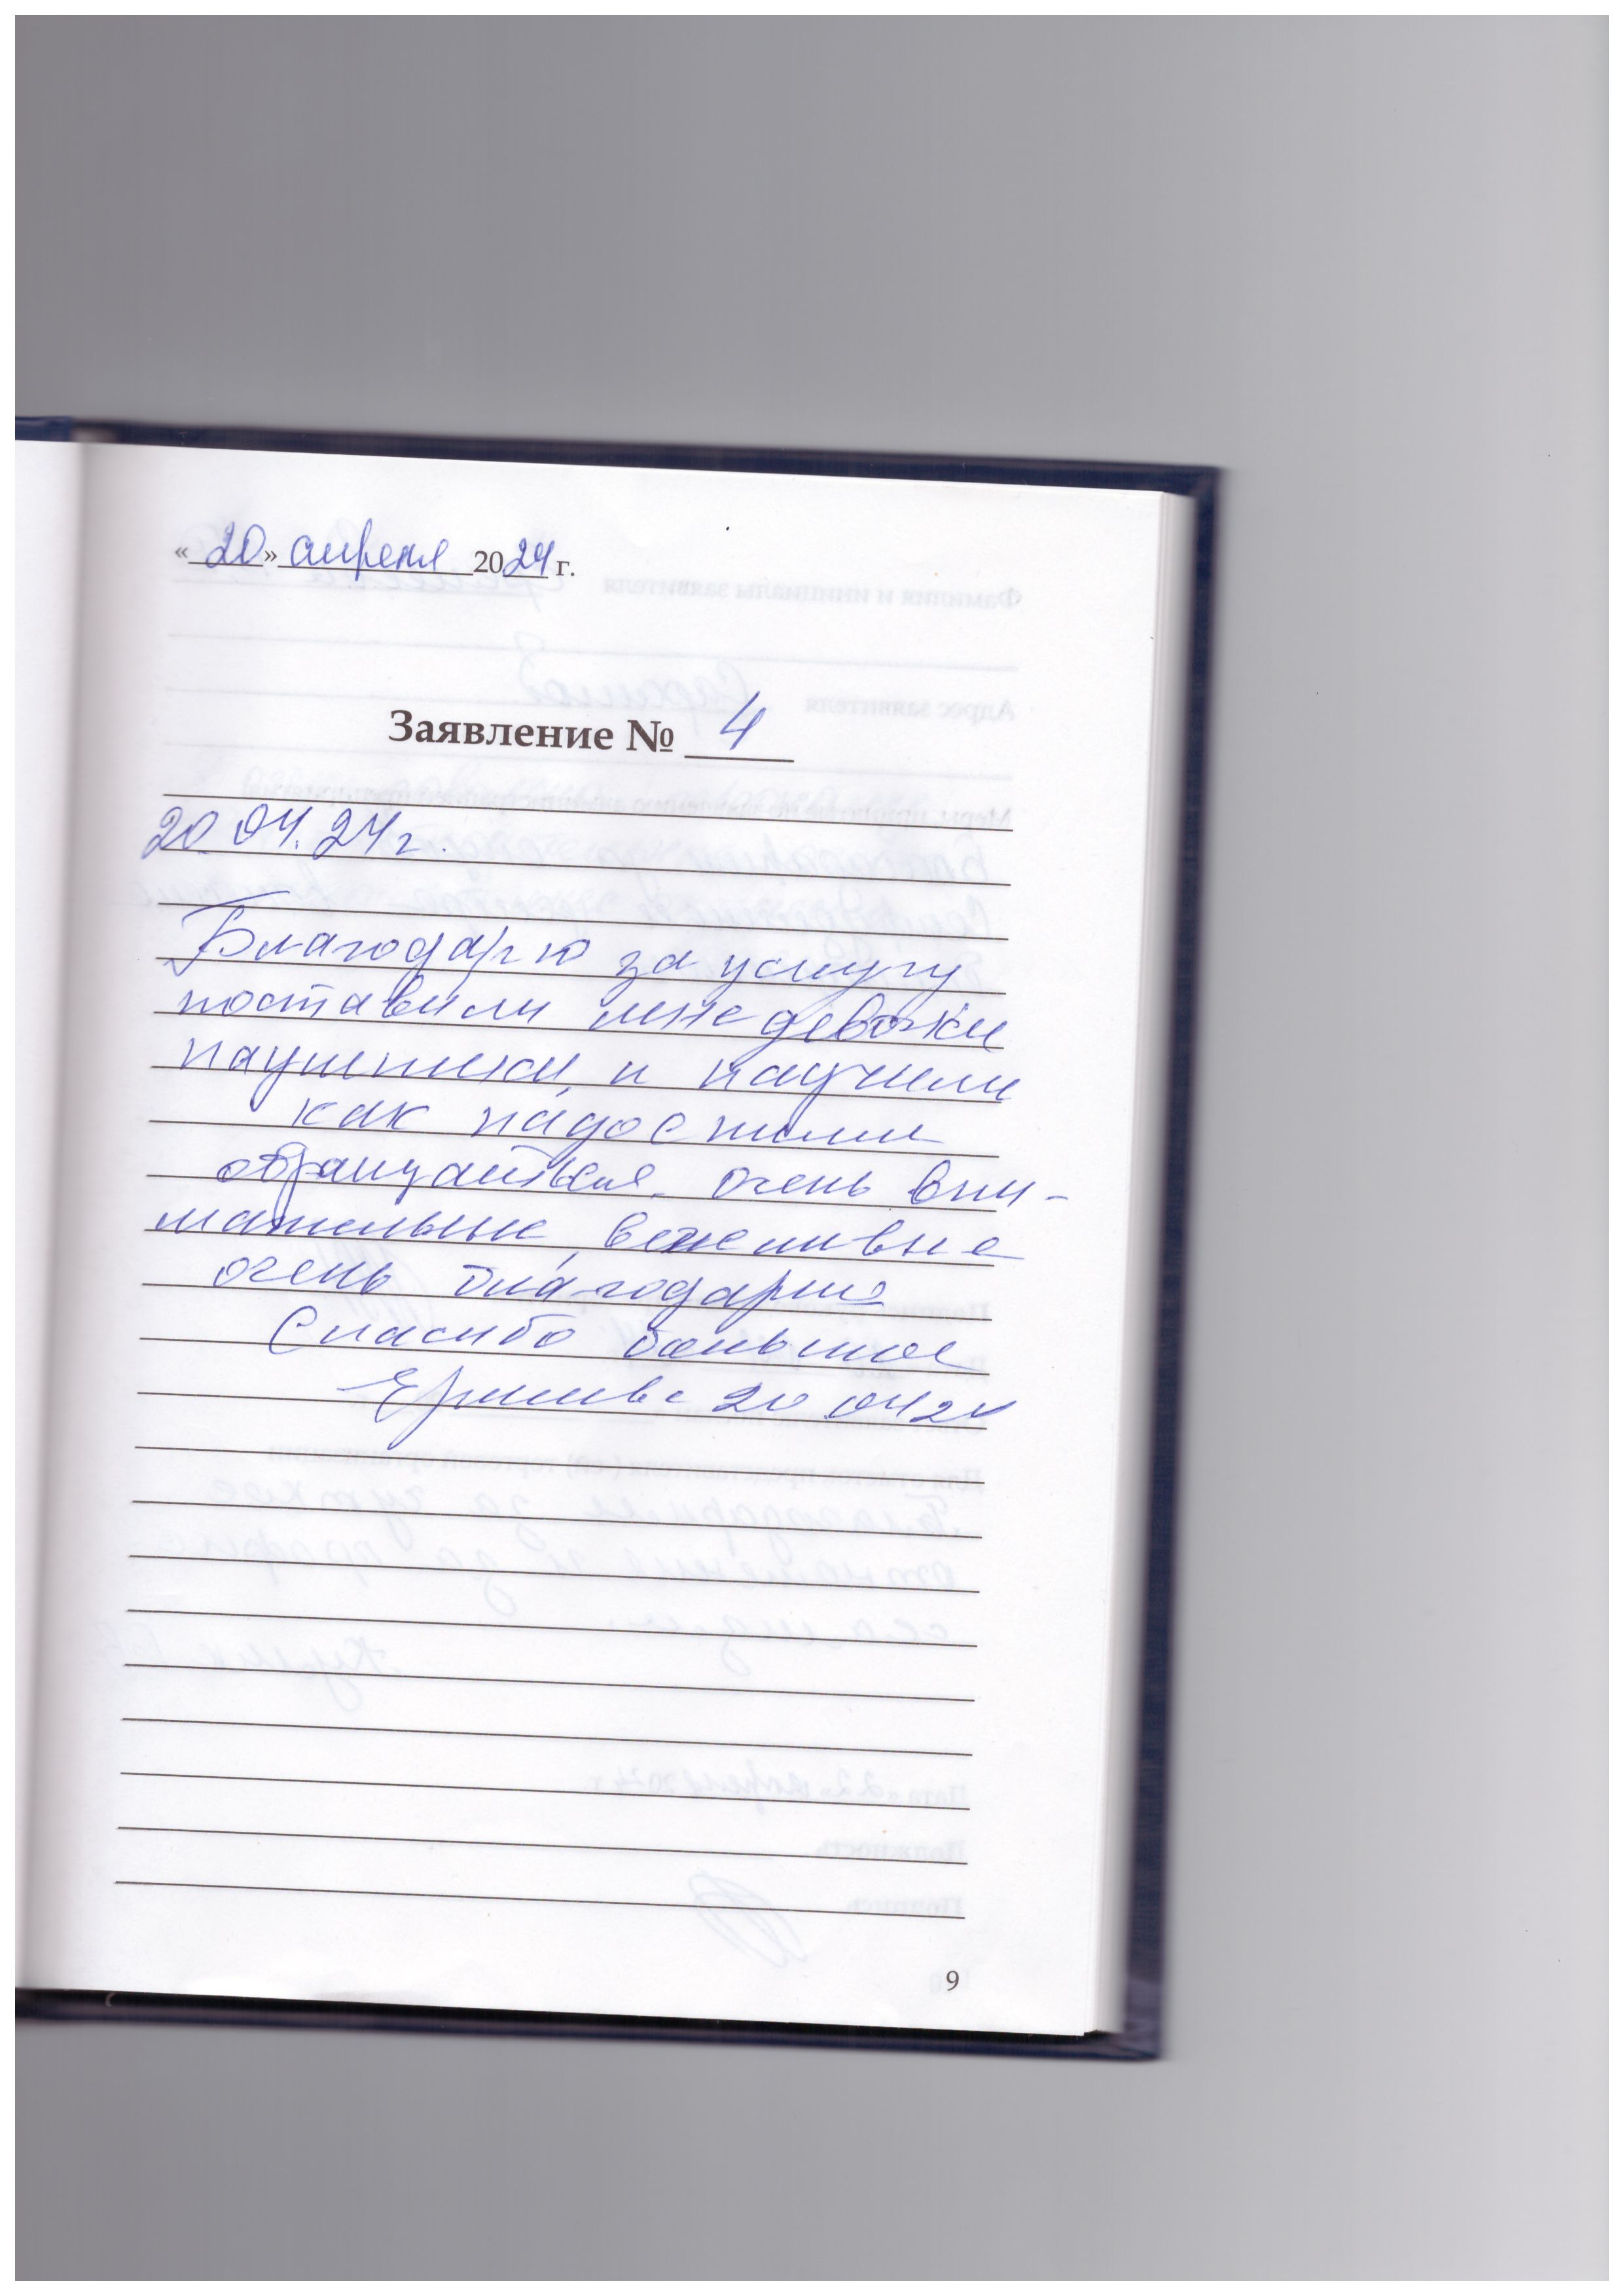 «20» апреля 2024 г.
Заявление № 4
20.04.24г.
Благодарю за услугу
поставили мне девочки
наушники, и научили
как надо с ними
обращаться. очень вни-
мательные, вежливые
очень благодарю
Спасибо большое
20.04.24
9